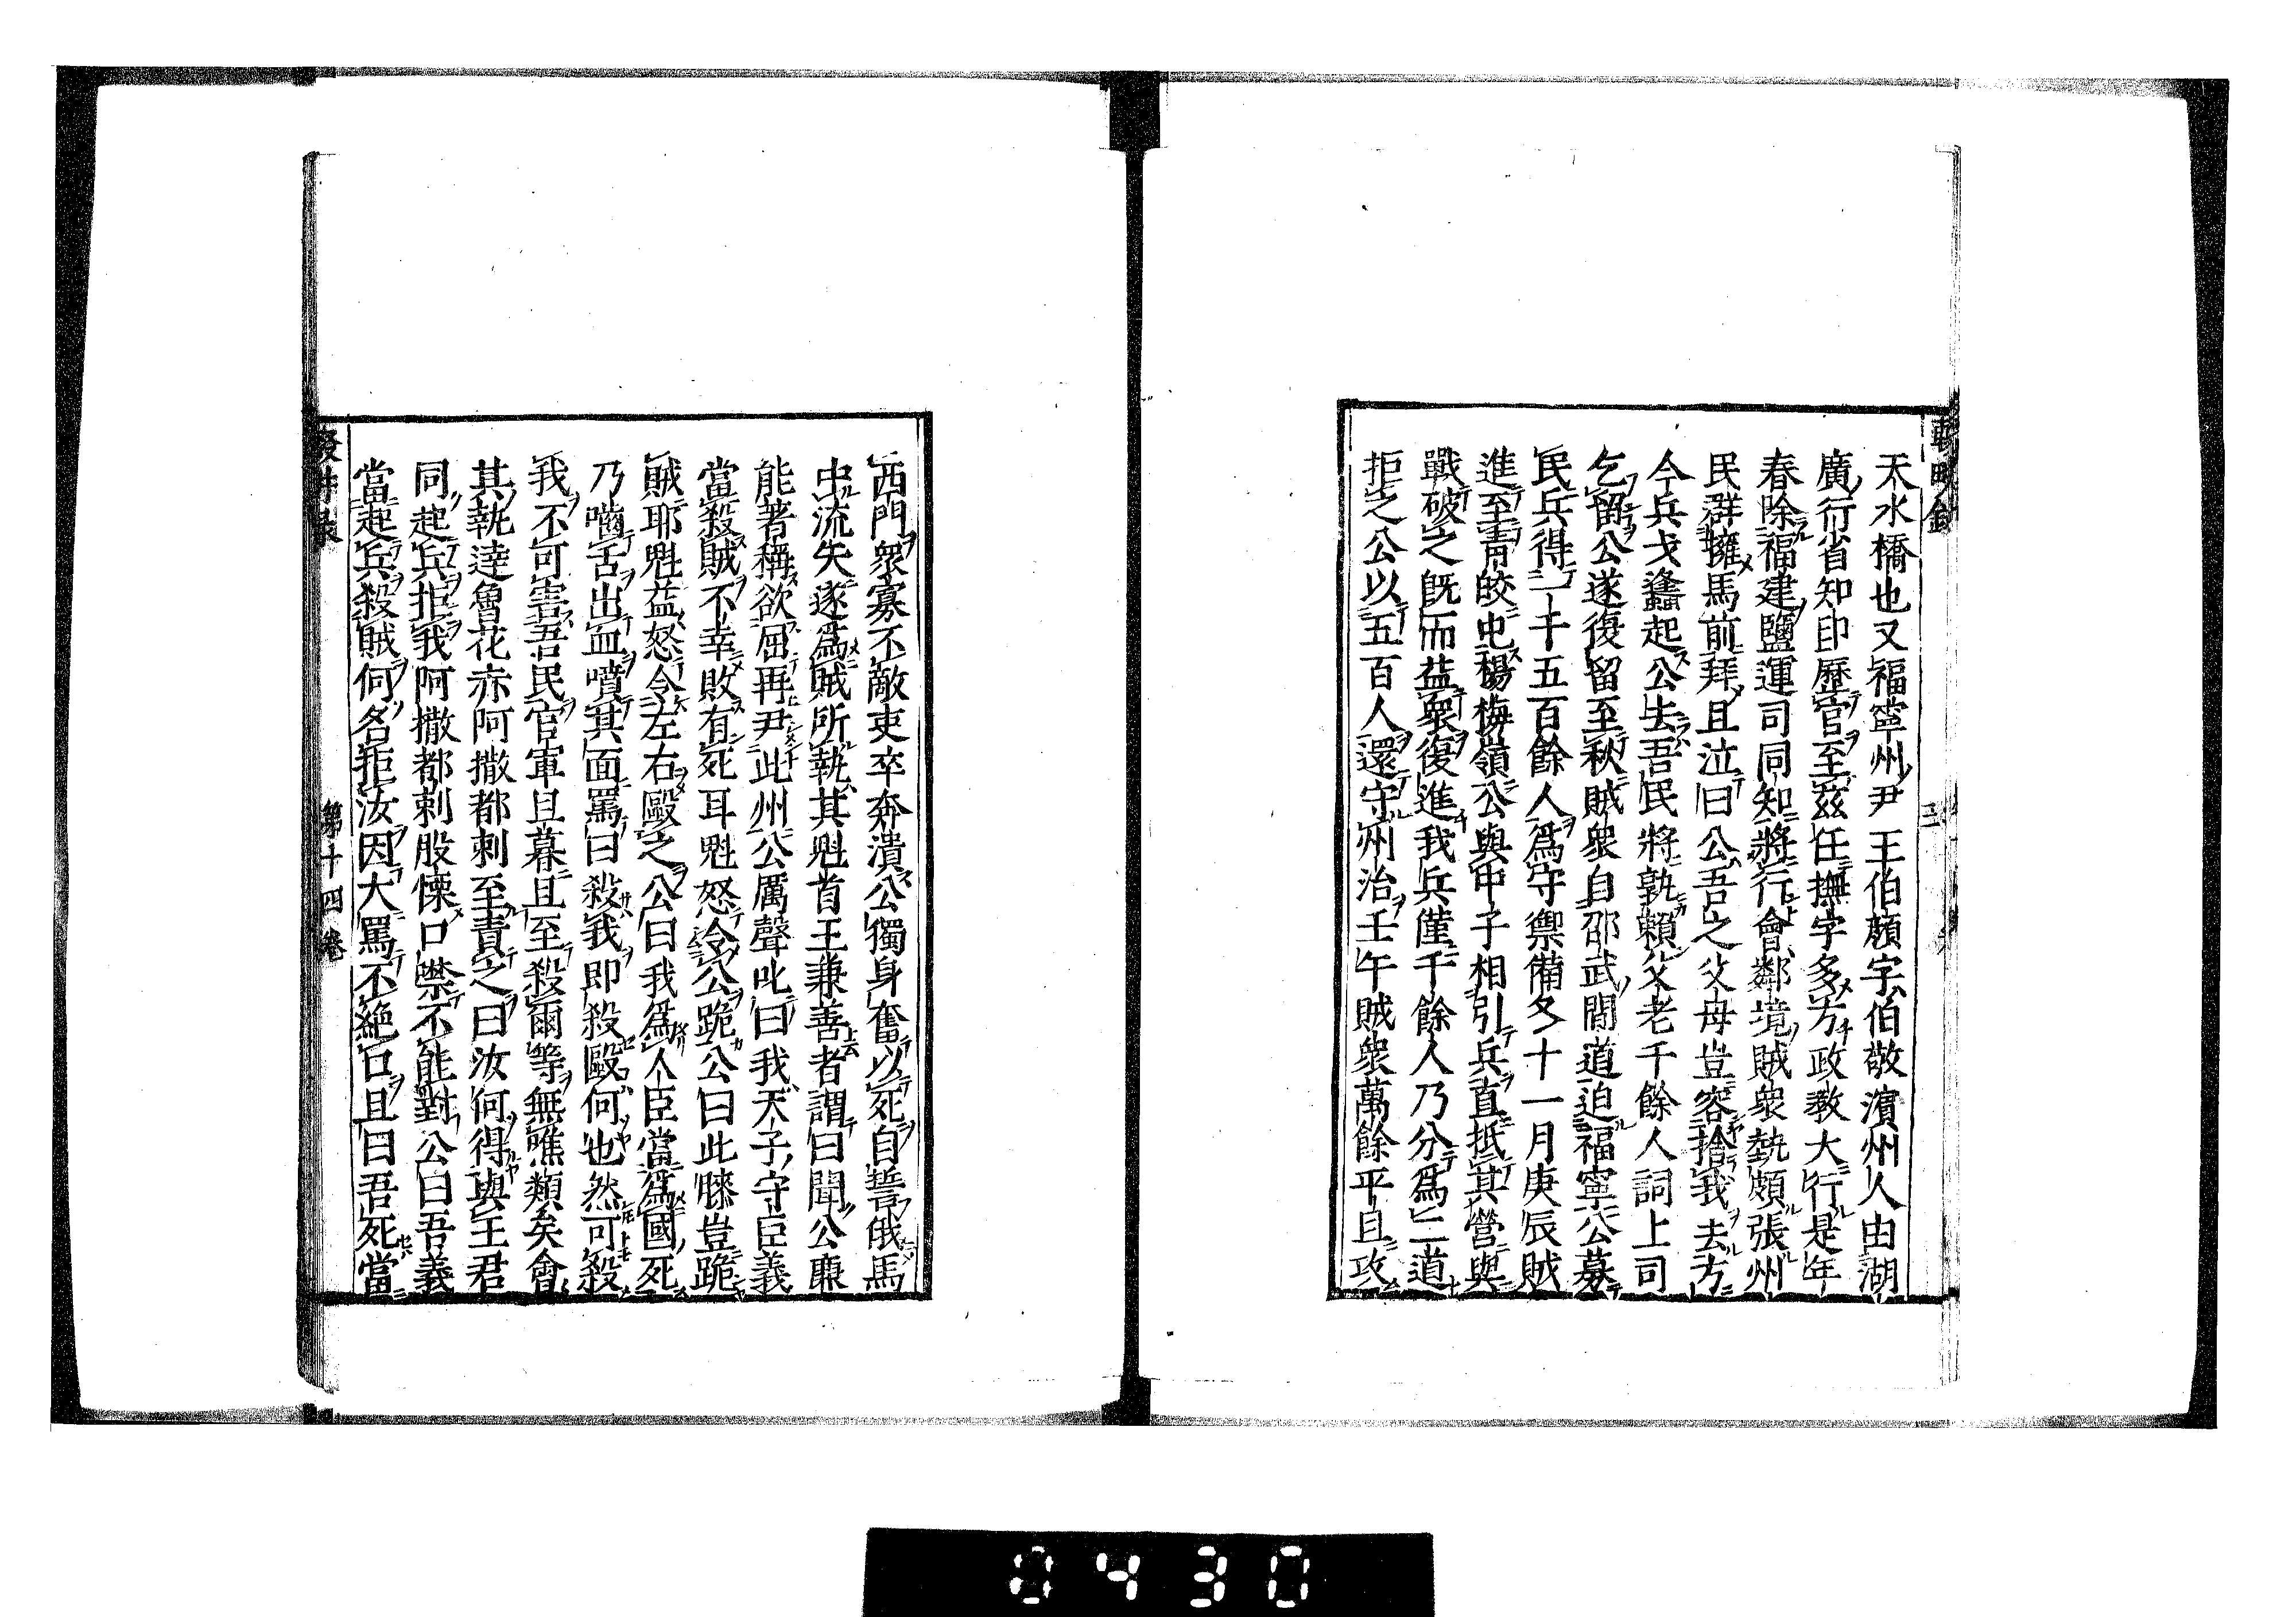 輟畊錄
三
天水橋也又福寧州尹王伯顔字伯敬濱州人由湖
廣行省知印歷官至茲任撫字多方政教大行是年
春除福建鹽運司同知將行會鄰境賊衆埶頗張州
民群擁馬前拜且泣曰公吾之父母豈容捨我去方
今兵戈蠭起公去吾民將孰賴父老千餘人詞上司
乞留公遂復留至秋賊衆自邵武間道迫福寧公募
民兵得二千五百餘人爲守禦備冬十一月庚辰賊
進至靑皎屯楊梅嶺公與中子相引兵直抵其營與
戰破之旣而益衆復進我兵僅千餘人乃分爲二道
拒之公以五百人還守州治壬午賊衆萬餘平旦攻
西門衆寡不敵吏卒奔潰公獨身奮以死自誓俄馬
中流矢遂爲賊所執其魁首王兼善者謂曰聞公廉
能著稱欲屈再尹此州公厲聲叱曰我天子守臣義
當殺賊不幸敗有死耳魁怒令公跪公曰此膝豈跪
賊耶魁益怒令左右毆之公曰我爲人臣當爲國死
乃嚙舌出血噴其面罵曰殺我即殺毆何也然可殺
我不可害吾民官軍旦暮且至殺爾等無噍類矣會
其執達魯花赤阿撒都刺至責之曰汝何得與王君
同起兵拒我阿撒都刺股慄口噤不能對公曰吾義
當起兵殺賊何名拒汝因大罵不絶口且曰吾死當
第十四卷
0430